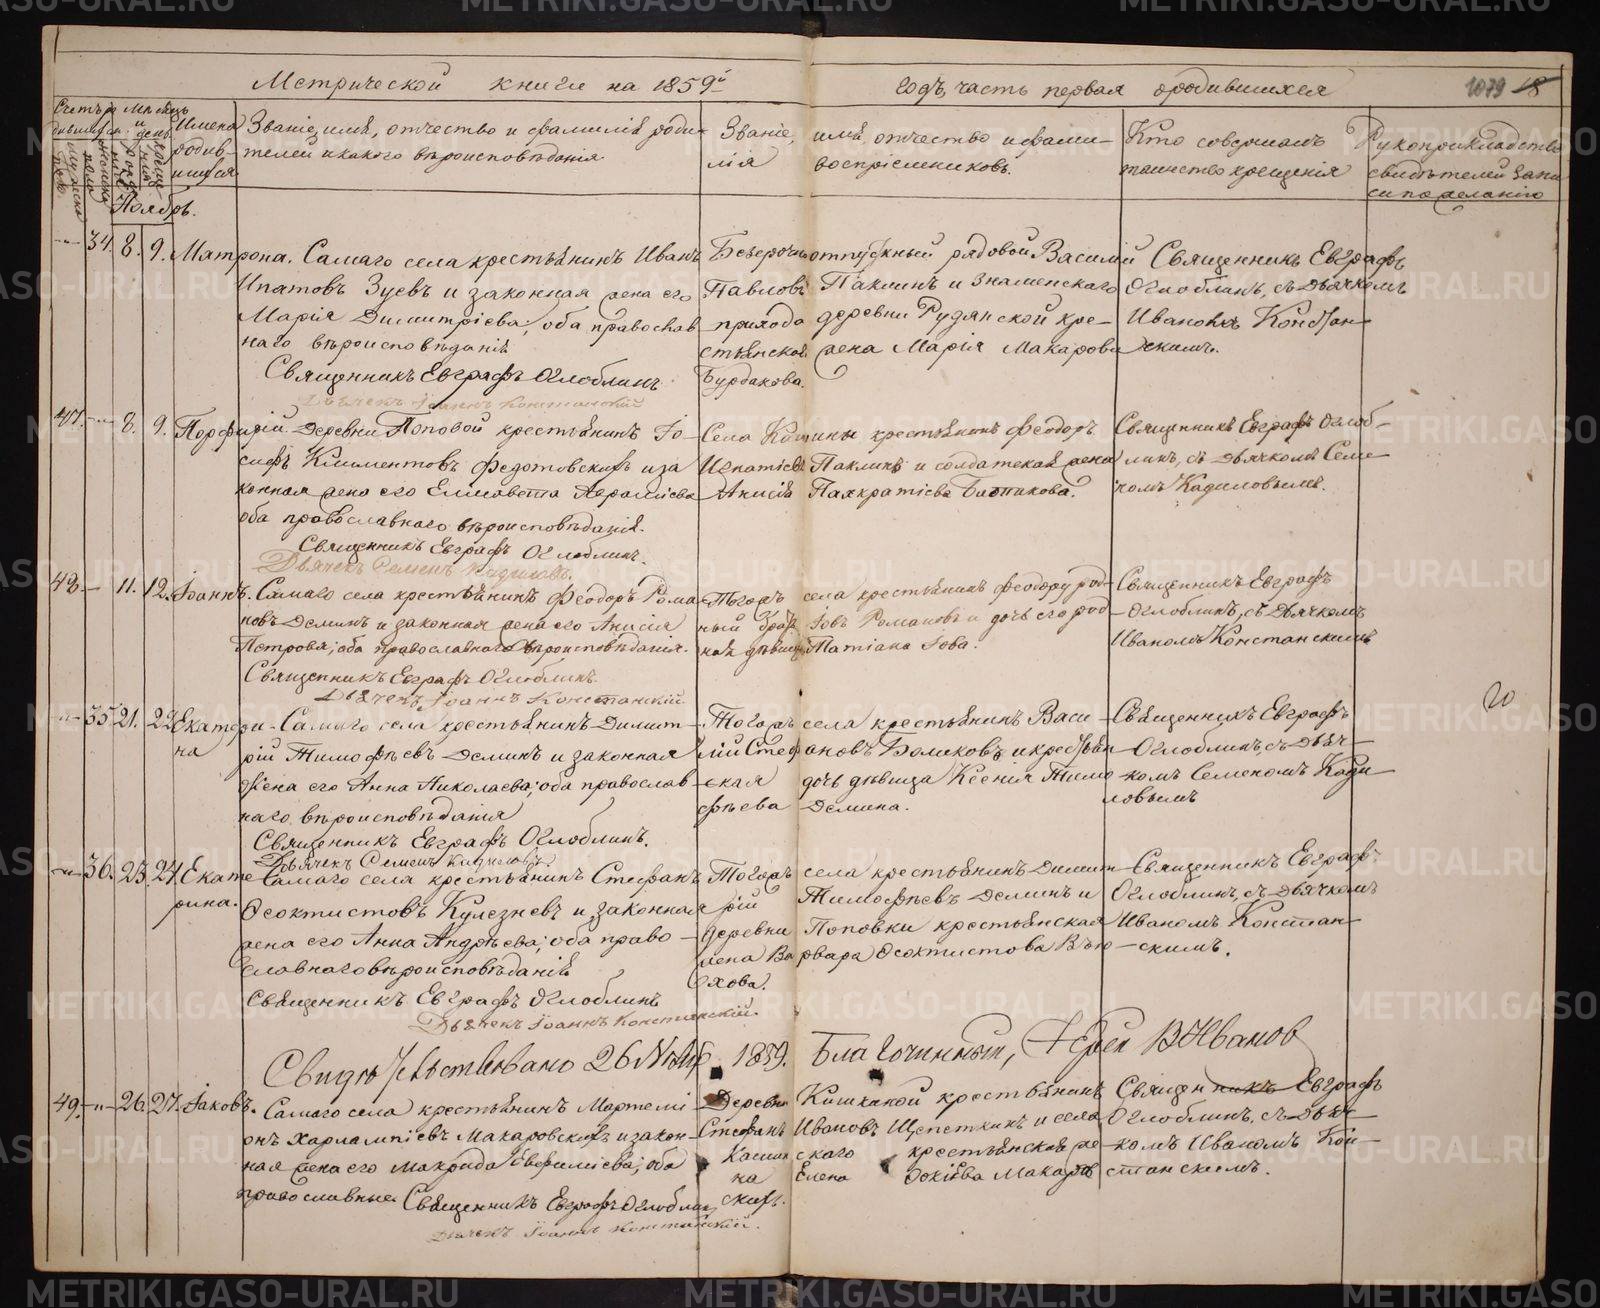 Метрической книги на 1859й годъ, часть первая о родившихся
1079 18
Счетъ родившихся
мужеска пола
женска пола
Мѣсяцъ и день
рожденія
крещенія
Имена родившихся
Званіе, имя, отчество и фамилія роди-
телей и какого вѣроисповѣданія.
Званіе, имя, отчество и фами-
лія воспріемниковъ.
Кто совершалъ
таинство крещенія
Рукоприкладство
свидѣтелей запи
си по желанію
Ноябрь.
34. 8. 9. Матрона.
Самаго села крестьянинъ Иванъ
Ипатовъ Зуевъ и законная жена его
Марія Димитріева; оба православ
наго вѣроисповѣданія
Священникъ Евграфъ Оглоблинъ.
Дьячекъ Іоаннъ Констанскій
Безсрочно отпускный рядовой Василій
Павловъ Паклинъ и Знаменскаго
прихода деревни Рудянской кре-
стьянская жена Марія Макарова
Бурдакова.
Священникъ Евграфъ
Оглоблинъ, съ дьячкомъ
Иваномъ Констан-
скимъ.
47. 8. 9. Порфирій.
Деревни Поповой крестьянинъ Іо-
сифъ Климентовъ Федотовскихъ и за
конная жена его Елисавета Авраміева
оба православнаго вѣроисповѣданія.
Священникъ Евграфъ Оглоблинъ.
Дьячекъ Семенъ Кадиловъ.
Села крестьянинъ Феодоръ
Игнатіевъ Паклинъ и солдатская жена
Анисія Панкратіева
Священникъ Евграфъ Оглоб-
линъ, съ дьячкомъ Семе-
номъ Кадиловымъ.
48. 11. 12. Іоаннъ.
Самаго села крестьянинъ Феодоръ Рома
новъ Деминъ и законная жена его Анисія
Петрова; оба православнаго вѣроисповѣданія.
Священникъ Евграфъ Оглоблинъ.
Дьячекъ Іоаннъ Констанскій
Тогожъ села крестьянинъ Феодору род-
ный братъ Іовъ Романовъ и дочь его род
ная дѣвица Татіана Іова.
Священникъ Евграфъ
Оглоблинъ, съ дьячкомъ
Иваномъ Констанскимъ
35. 21. 22. Екатери-
на
Самаго села крестьянинъ Димит-
рій Тимофѣевъ Деминъ и законная
жена его Анна Николаева; оба православ-
наго вѣроисповѣданія
Священникъ Евграфъ Оглоблинъ.
Дьячекъ Семенъ Кадиловъ.
Тогожъ села крестьянинъ Васи-
лій Стефановъ и крестьян-
ская дочь дѣвица Ксенія Тимо
фѣева Демина.
Священникъ Евграфъ
Оглоблинъ, съ дьяч-
комъ Семеномъ Кади
ловымъ
20
36. 23. 24. Екате
рина.
Самаго села крестьянинъ Стефанъ
Ѳеоктистовъ Кулезневъ и законная
жена его Анна Андрѣева; оба право-
славнаго вѣроисповѣданія
Священникъ Евграфъ Оглоблинъ
Дьячекъ Іоаннъ Констанскій.
Тогожъ села крестьянинъ Димит
рій Тимофѣевъ Деминъ и
деревни Поповки крестьянская
жена Варвара Ѳеоктистова
Священникъ Евграфъ
Оглоблинъ, съ дьячкомъ
Иваномъ Констан-
скимъ.
Свидѣтельствовано 26 Нояб. 1859. Благочинный, Іерей В Ивановъ
49. 26. 27. Іаковъ.
Самаго села крестьянинъ Мартемі-
онъ Харлампіевъ Макаровскихъ и закон-
ная жена его Макрида Евфиміева; оба
православные. Священникъ Евграфъ Оглоблинъ
Дьячекъ Іоаннъ Констанскій.
Деревни крестьянинъ
Стефанъ Ивановъ Щепеткинъ и села
крестьянская же
на Елена Макаров
скихъ.
Священникъ Евграфъ
Оглоблинъ, съ дьяч-
комъ Иваномъ Кон-
станскимъ.
METRIKI.GASO-URAL.RU